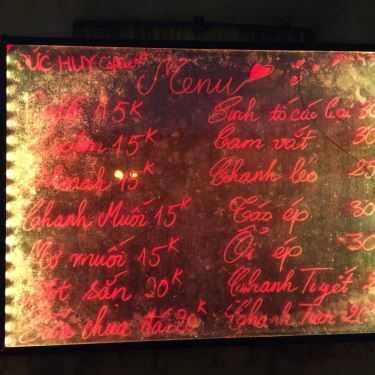 ỨC HUY Coffee
Menu
15K
15K
15K
Chanh Muối 15K
Mơ muối 15K
sắn 20K
chua đá 20K
Sinh tố các loại
Cam vắt 30
Chanh leo 25
Táo ép 30
Ổi ép 30
Chanh Tuyết
Chanh